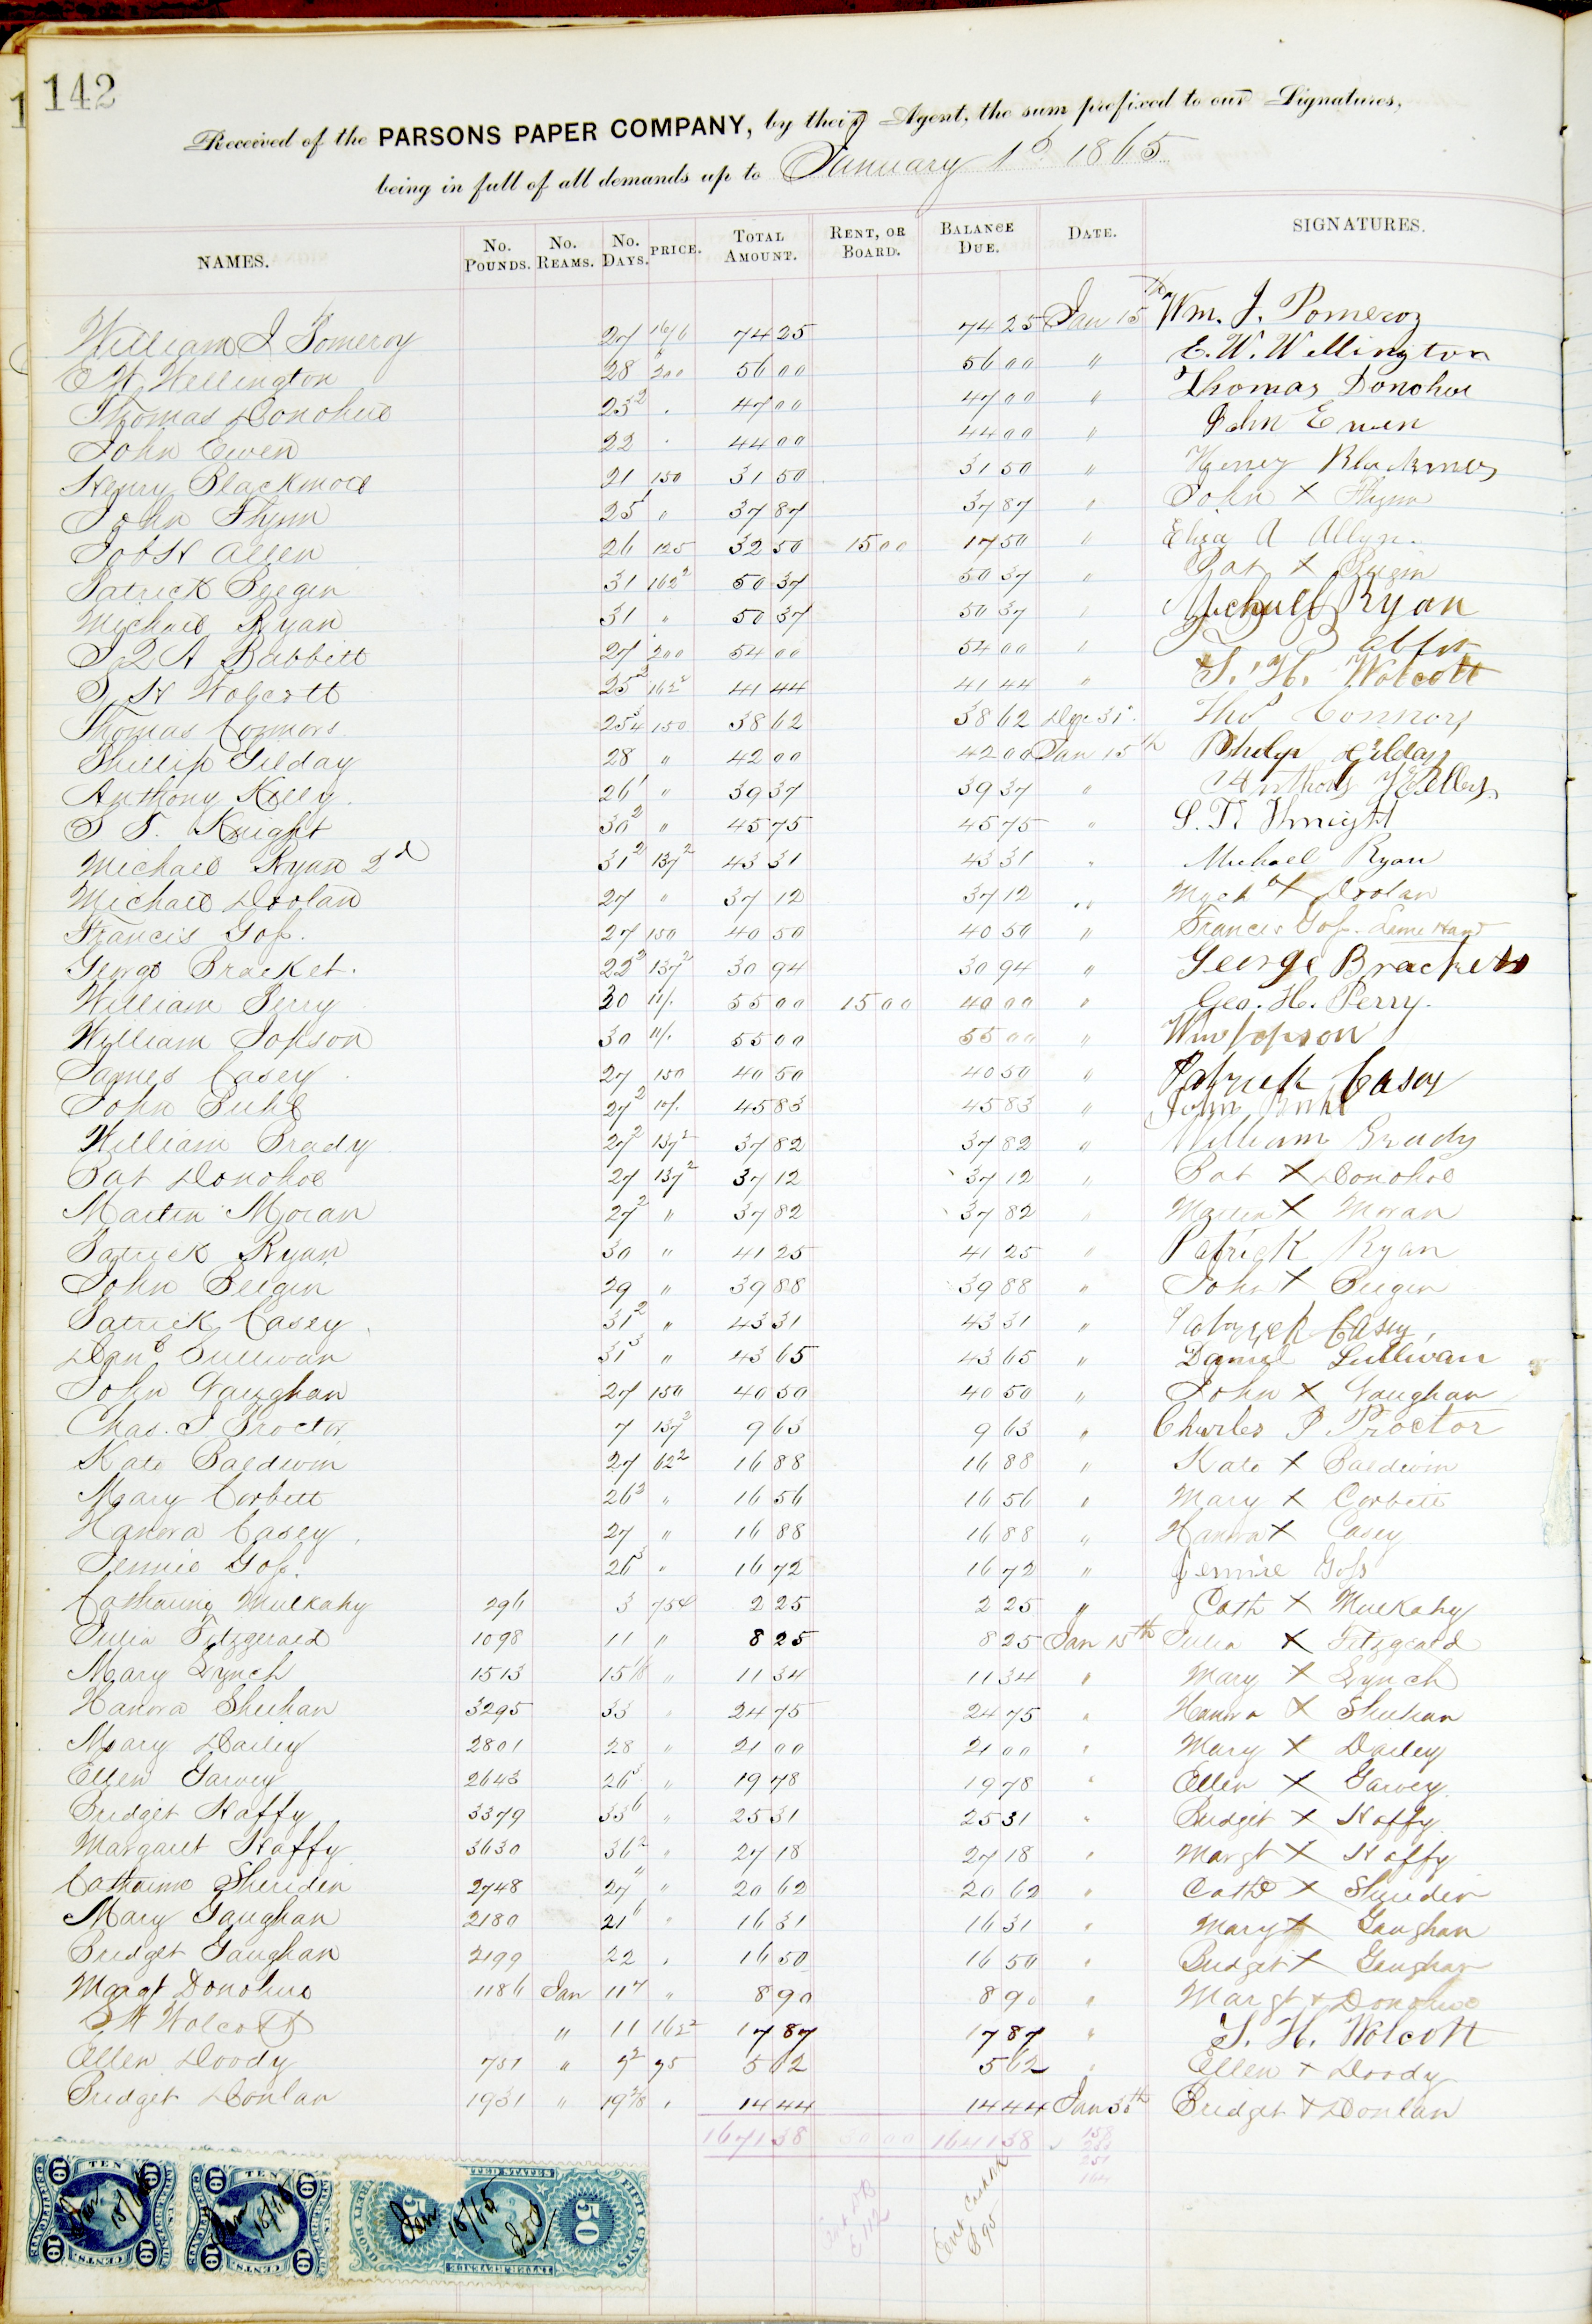 142
Received of the PARSONS PAPER COMPANY, by their Agent, the sum prefixed to our Signatures,
being in full of all demands up to January 1st 1865
NAMES. No. Pounds. No. Reams. No. Days. PRICE. Total Amount. Rent, or Board. Balance Due. Date. SIGNATURES.
William J Pomeroy 27 16/6 74 25 74 25 Jan 15th Wm. J. Pomeroy
E W Wellington 28 200 56 00 56 00 " E. W. Wellington
Thomas Donohue 23 2 47 00 47 00 " Thomas Donohue
John Ewen 22 44 00 44 00 " John Ewen
Henry Blackmore 21 150 31 50 31 50 " Henry Blackmer
John Flynn 25 1 " 37 87 37 87 " John X Flynn
Job H Allen 26 125 32 50 15 00 17 50 " Eliza A Allyn.
Patrick Beegin 31 162 2 50 37 50 37 " Pat X
Michael Ryan 31 " 50 37 50 37 " Michael Ryan
Babbitt 27 200 54 00 54 00 "
S H Wolcott 25 2 162 2 41 44 41 44 " S. H. Wolcott
Thomas Connors 25 3/4 150 38 62 38 62 Dec 31st. Thos Connors
Phillip Gilday 28 " 42 00 42 00 Jan 15th Philip Gilday
Anthony Kelly. 26 1 " 39 37 39 37 " Anthony Kelley
S T. Knight 30 2 " 45 75 45 75 " S. T. Knight
Michael Ryan 2d 31 2 137 2 43 31 43 31 " Michael Ryan
Michael Doolan 27 " 37 12 37 12 " X Doolan
Francis Gofs. 27 150 40 50 40 50 " Francis Gofs. Lame Hand
George Bracket. 22 2 137 2 30 94 30 94 " George Brackett
William Perry 30 11/. 55 00 15 00 40 00 " Geo. H. Perry.
William Jopson 30 11/. 55 00 55 00 " Wm Jopson
James Casey 27 150 40 50 40 50 " Patrick Casey
John Buhl 27 2 10/. 45 83 45 83 " John Buhl
William Brady 27 2 137 2 37 82 37 82 " William Brady
Pat Donohoe 27 137 2 37 12 37 12 " Pat X Donohoe
Martin Moran 27 2 " 37 82 37 82 " Martin X Moran
Patrick Ryan 30 " 41 25 41 25 " Patrick Ryan
John Beegin 29 " 39 88 39 88 " John X Beegin
Patrick Casey 31 2 " 43 31 43 31 " Patrick Casey
Danl Sullivan 31 3 " 43 65 43 65 " Daniel Sullivan
John Vaughan 27 150 40 50 40 50 " John X Vaughan
Chas. P Proctor 7 137 2 9 63 9 63 " Charles P Proctor
Kate Baldwin 27 62 2 16 88 16 88 " Kate X Baldwin
Mary Corbett 26 2 " 16 56 16 56 " Mary X Corbett
Hanora Casey 27 " 16 88 16 88 " Hanora X Casey
Jennie Gofs. 26 3 " 16 72 16 72 " Jennie Gofs
Catharine Mulkahy 296 3 75¢ 2 25 2 25 " Cath X Mulkahy
Julia Fitzgerald 1098 11 " 8 25 8 25 Jan 15th Julia X Fitzgerald
Mary Lynch 1513 15 1/8 " 11 34 11 34 " Mary X Lynch
Hanora Sheehan 3295 33 " 24 75 24 75 " Hanora X Sheehan
Mary Dailey 2801 28 " 21 00 21 00 " Mary X Dailey
Ellen Garvey 2643 26 3 " 19 78 19 78 " Ellen X Garvey.
Bridget Haffy 3379 33 6 " 25 31 25 31 " Bridget X Haffy
Margaret Haffy 3630 36 2 " 27 18 27 18 " Margt X Haffy
Catharine Sheriden 2748 27 " 20 62 20 62 " Cath X Sheriden
Mary Gaughan 2180 21 6 " 16 31 16 31 " Mary X Gaughan
Bridget Gaughan 2199 22 " 16 50 16 50 " Bridget X Gaughan
Margt Donohue 1186 Jan 11 7 " 8 90 8 90 " Margt X Donohue
S H Wolcott " 11 162 2 17 87 17 87 " S. H. Wolcott
Ellen Doody 751 " 7 2 75 5 62 5 62 " Ellen X Doody
Bridget Donlan 1931 " 19 2/8 " 14 44 14 44 Jan 30th Bridget X Donlan
1671 38 30 00 1641 38
TEN CENTS. 10 Jan 15/65
TEN CENTS. 10 Jan 15/65
UNITED STATES INTER. REVENUE FIFTY CENTS 50 Jan 15/65